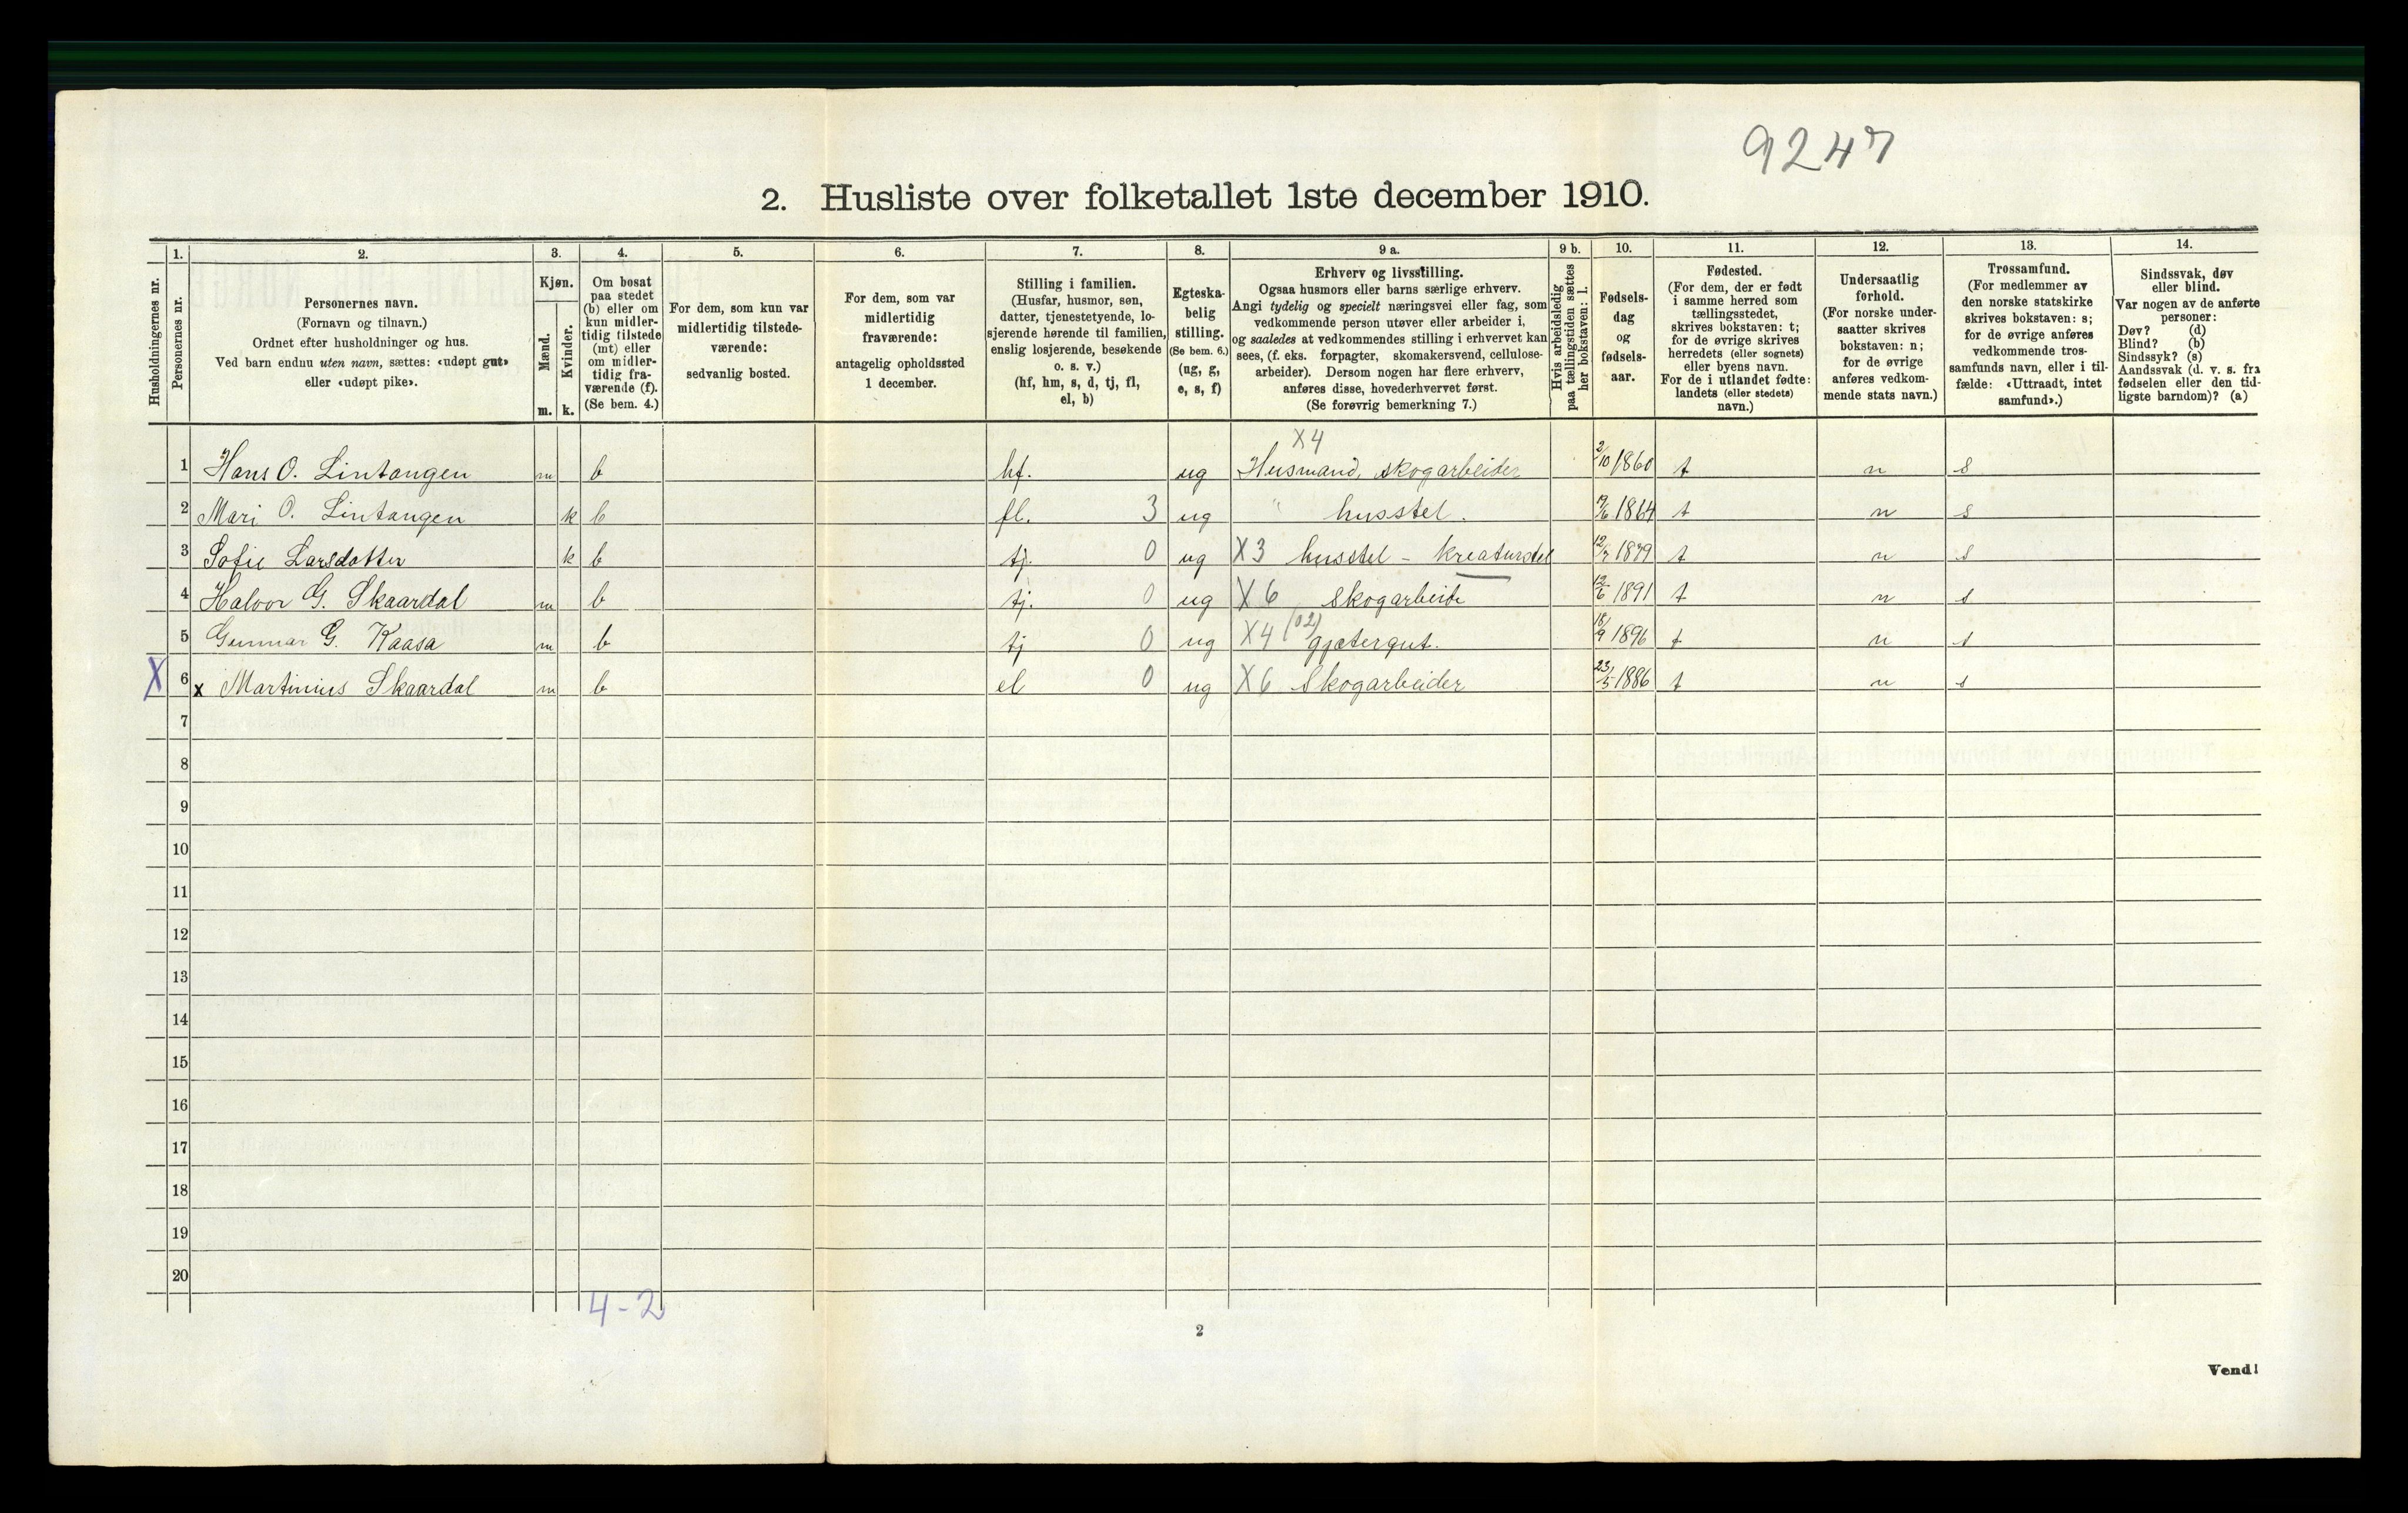 9247
2. Husliste over folketallet 1ste december 1910.
Husholdningernes nr.
1.
Personernes nr.
2.
Personernes navn.
(Fornavn og tilnavn.)
Ordnet efter husholdninger og hus.
Ved barn endnu uten navn, sættes: «udøpt gut»
eller «udøpt pike».
3.
Kjøn.
Mænd.
Kvinder.
m. k.
4.
Om bosat
paa stedet
(b) eller om
kun midler-
tidig tilstede
(mt) eller
om midler-
tidig fra-
værende (f).
(Se bem. 4.)
5.
For dem, som kun var
midlertidig tilstede-
værende:
sedvanlig bosted.
6.
For dem, som var
midlertidig
fraværende:
antagelig opholdssted
1 december.
7.
Stilling i familien.
(Husfar, husmor, søn,
datter, tjenestetyende, lo-
sjerende hørende til familien,
enslig losjerende, besøkende
o. s. v.)
(hf, hm, s, d, tj, fl,
el, b)
8.
Egteska-
belig
stilling.
(Se bem. 6.)
(ug, g,
e, s, f)
9 a.
Erhverv og livsstilling.
Ogsaa husmors eller barns særlige erhverv.
Angi tydelig og specielt næringsvei eller fag, som
vedkommende person utøver eller arbeider i,
og saaledes at vedkommendes stilling i erhvervet kan
sees, (f. eks. forpagter, skomakersvend, cellulose-
arbeider). Dersom nogen har flere erhverv,
anføres disse, hovederhvervet først.
(Se forøvrig bemerkning 7.)
9 b.
Hvis arbeidsledig
paa tællingstiden sættes
her bokstaven: l.
10.
Fødsels-
dag
og
fødsels-
aar.
11.
Fødested.
(For dem, der er født
i samme herred som
tællingsstedet,
skrives bokstaven: t;
for de øvrige skrives
herredets (eller sognets)
eller byens navn.
For de i utlandet fødte:
landets (eller stedets)
navn.)
12.
Undersaatlig
forhold.
(For norske under-
saatter skrives
bokstaven: n;
for de øvrige
anføres vedkom-
mende stats navn.)
13.
Trossamfund.
(For medlemmer av
den norske statskirke
skrives bokstaven: s;
for de øvrige anføres
vedkommende tros-
samfunds navn, eller i til-
fælde: «Uttraadt, intet
samfund».)
14.
Sindssvak, døv
eller blind.
Var nogen av de anførte
personer:
Døv? (d)
Blind? (b)
Sindssyk? (s)
Aandssvak (d. v. s. fra
fødselen eller den tid-
ligste barndom)? (a)
X4
1 Hans O. Lintangen m b hf. ug Husmand, skogarbeider 2/10 1860 t n s
2 Mari O. Lintangen k b fl. 3 ug " husstel. 1864 t n s
3 Sofie Larsdatter k b tj. 0 ug X3 husstel - kreaturstel 12/7 1879 t n s
4 Halvor G. Skaardal m b tj. 0 ug X6 skogarbeide 12/6 1891 t n s
5 Gunnar G. Kaasa m b tj 0 ug X4 (02) gjætergut. 18/9 1896 t n s
X 6 x Martinius Skaardal m b el 0 ug X6 Skogarbeider 23/5 1886 t n s
7
8
9
10
11
12
13
14
15
16
17
18
19
20
4-2
2
Vend!